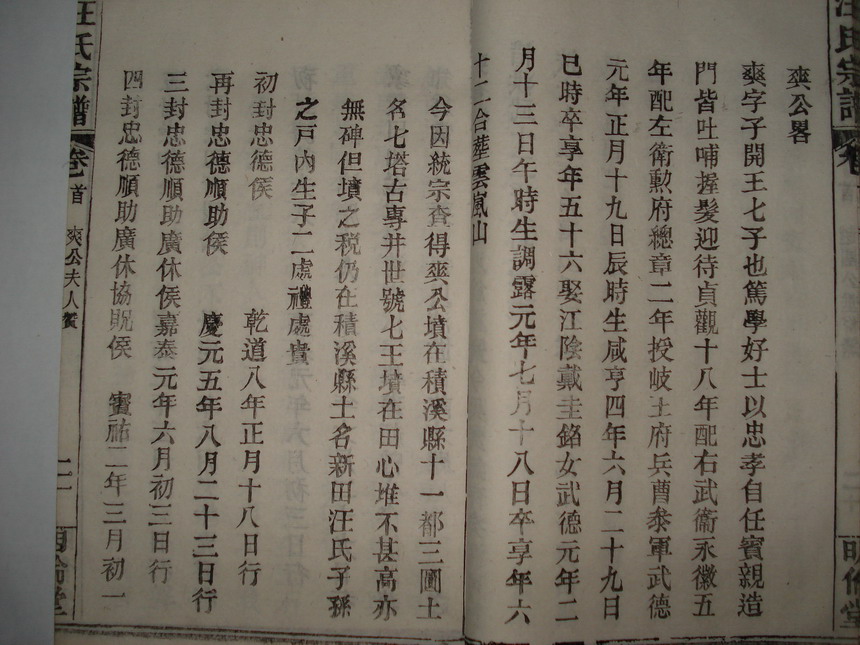 汪氏宗譜 卷
明倫堂
爽公畧
爽字子開王七子也篤學好士以忠孝自任賓親造
門皆吐哺握髮迎待貞觀十八年配右武衞永徽五
年配左衛勲府總章二年授岐王府兵曹叅軍武德
元年正月十九日辰時生咸亨四年六月二十九日
巳時卒享年五十六娶江陰戴圭銘女武德元年二
月十三日午時生調露元年七月十八日卒享年六
十二合塟雲嵐山
今因統宗查得爽公墳在積溪縣十一都三圖土
名七塔古專井世號七王墳在田心堆不甚高亦
無碑但墳之税仍在積溪縣土名新田汪氏子孫
之戸內生子二處禮處實
初封忠德侯 乾道八年正月十八日行
再封忠德順助侯 慶元五年八月二十三日行
三封忠德順助廣休侯嘉泰元年六月初三日行
四封忠德順助廣休協貺侯 寳祐二年三月初一
汪氏宗譜 卷首 爽公夫人贊 二十一 明倫堂